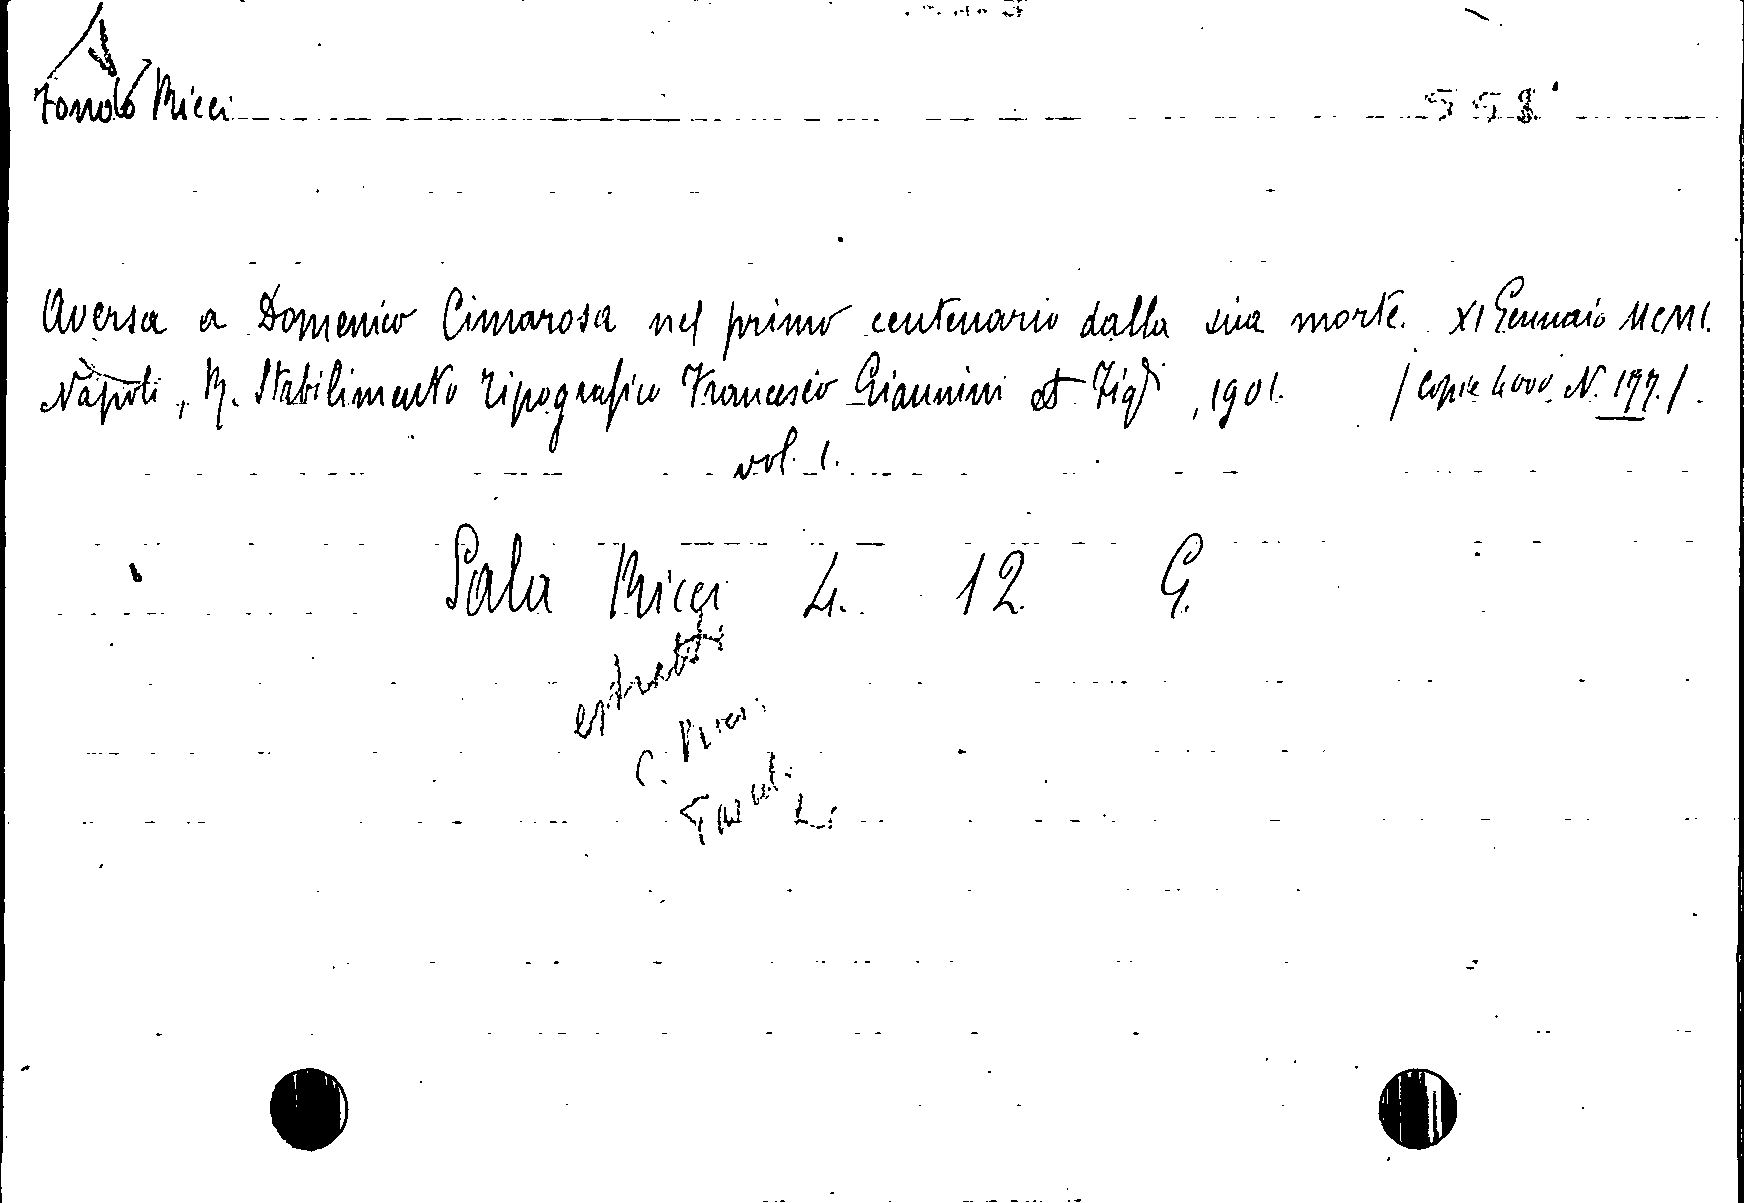 Fondo Ricci 558
Aversa a Domenico Cimarosa nel primo centenario dalla sua morte. XI Gennaio MCMI.
Napoli, R. Stabilimento Tipografico Francesco Giannini et Figli, 1901. / Copie 4000. N. 177. /
vol. 1.
Sala Ricci 4. 12 G.
estratti
C. Ricci